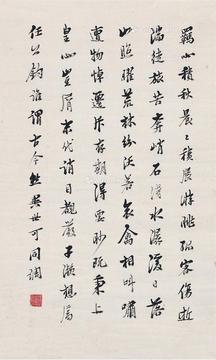 羈心積秋晨晨積展遊眺孤客傷逝
湍徒旅苦奔峭石淺水潺湲日落
山照曜荒林紛沃若哀禽相叫嘯
遭物悼遷斥存期得要妙既秉上
皇心豈屑末代誚目覩嚴子瀨想屬
任公釣誰謂古今殊異世可同調